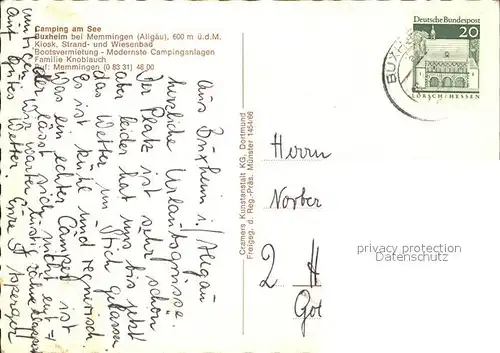 Camping am See
Buxheim bei Memmingen (Allgäu), 600 m ü.d.M.
Kiosk, Strand- und Wiesenbad
Bootsvermietung - Modernste Campinganlagen
Familie Knoblauch
Ruf: Memmingen (0 83 31) 48 00
Aus Buxheim i./Allgäu
herzliche Urlaubsgrüsse.
Der Platz ist sehr schön
aber leider hat uns bis jetzt
das Wetter im Stich gelassen.
Es ist kühl und regnerisch.
Was ein echter Camper ist
der lässt sich nicht ent=
mutigen. Wir warten
auf gutes Wetter. Eure
Cramers Kunstanstalt KG, Dortmund
Freigeg. d. Reg.-Präs. Münster 1454/66
Deutsche Bundespost
20
LORSCH/HESSEN
BUXH
Herrn
Norber
2 H
Got
privacy protection
Datenschutz